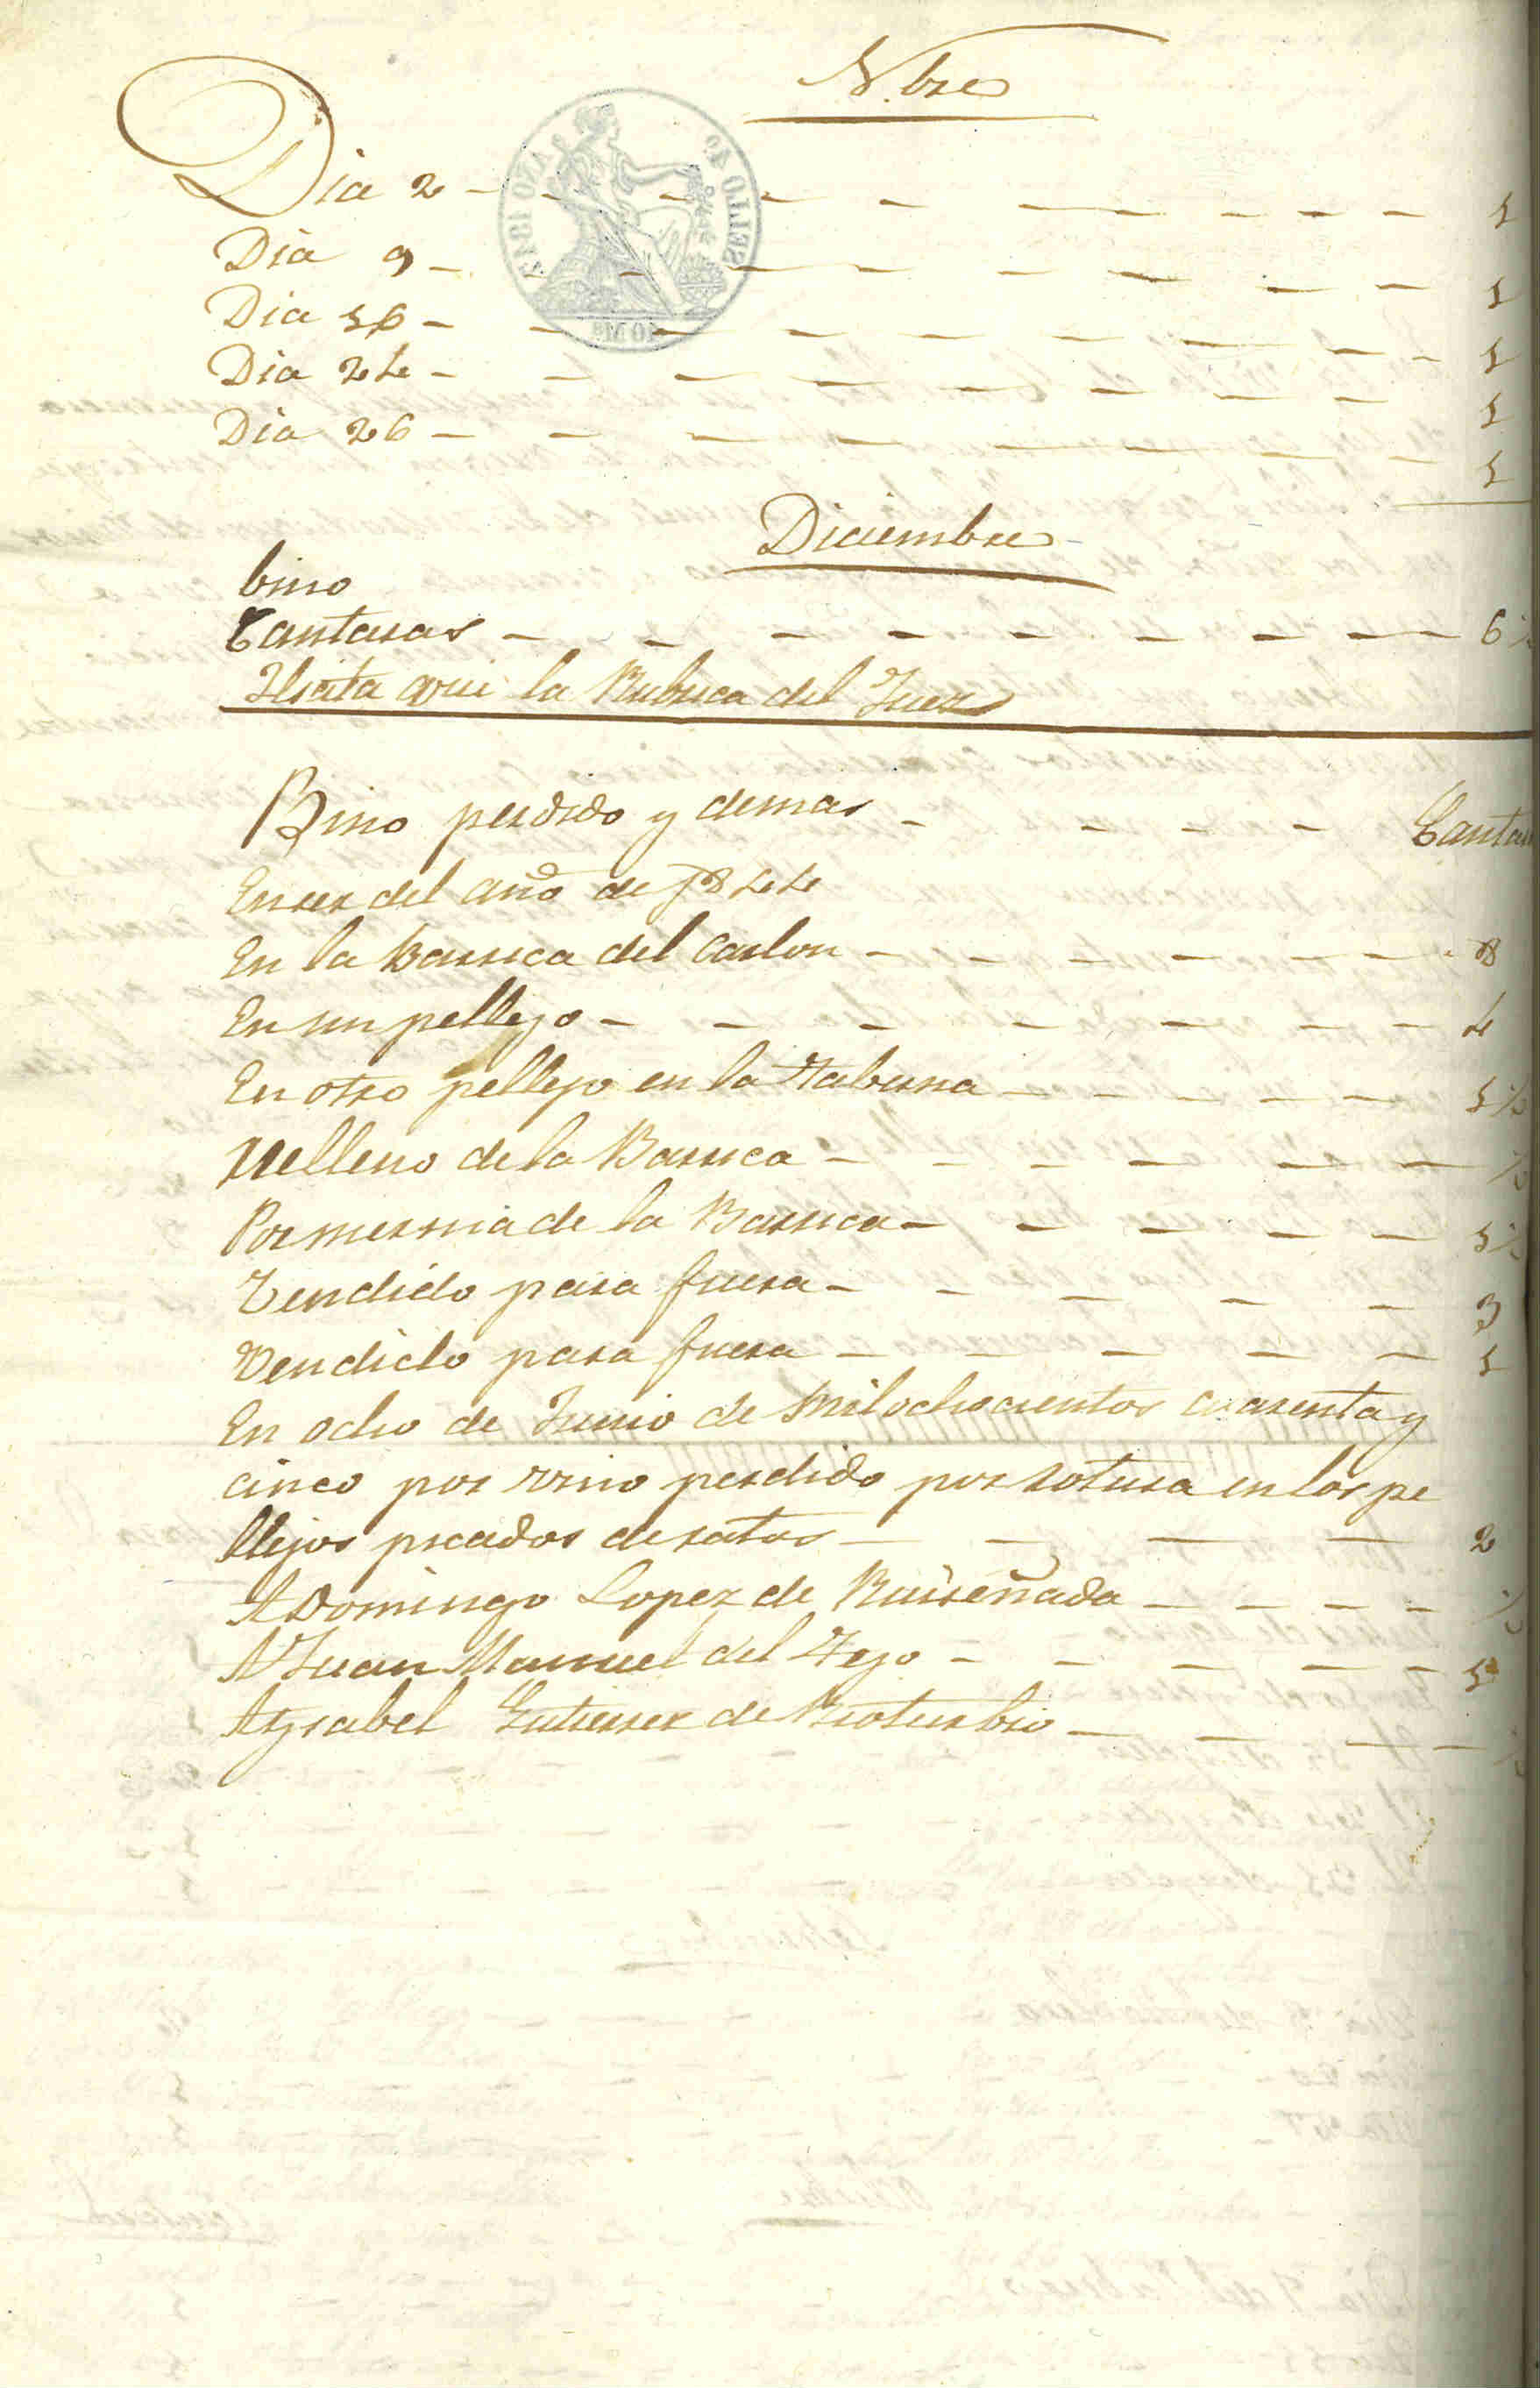 N.bre
Dia 2 - - - - - - - - - - 1
Dia 9 - - - - - - - - - 1
Dia 16 - - - - - - - - - 1
Dia 24 - - - - - - - - - 1
Dia 26 - - - - - - - - 1
Diciembre
bino
Cantaras - - - - - - - - 6 ½
Hasta aqui la Rubrica del Juez
Bino perdido y demas - - - - Cantar
Enser del año de 1844
En la Barrica del Carlon - - - - - - 8
En un pellejo - - - - - - - 4
En otro pellejo en la taberna - - - - - 1 ½
Relleno de la Barrica - - - - - - ½
Por mermia de la Barrica - - - - - 1 ½
Vendido para fuera - - - - - 3
Vendido para fuera - - - - - 1
En ocho de Junio de mil ochocientos cuarenta y
cinco por vino perdido por rotura en los pe
llejos picados de ratas - - - - 2
A Domingo Lopez de Ruiseñada - - - - ½
A Juan Manuel del Tejo - - - - - 1
A Ysabel Gutierrez de Rioturbio - - - - ½
SELLO 4º
AÑO 184
40 Ms